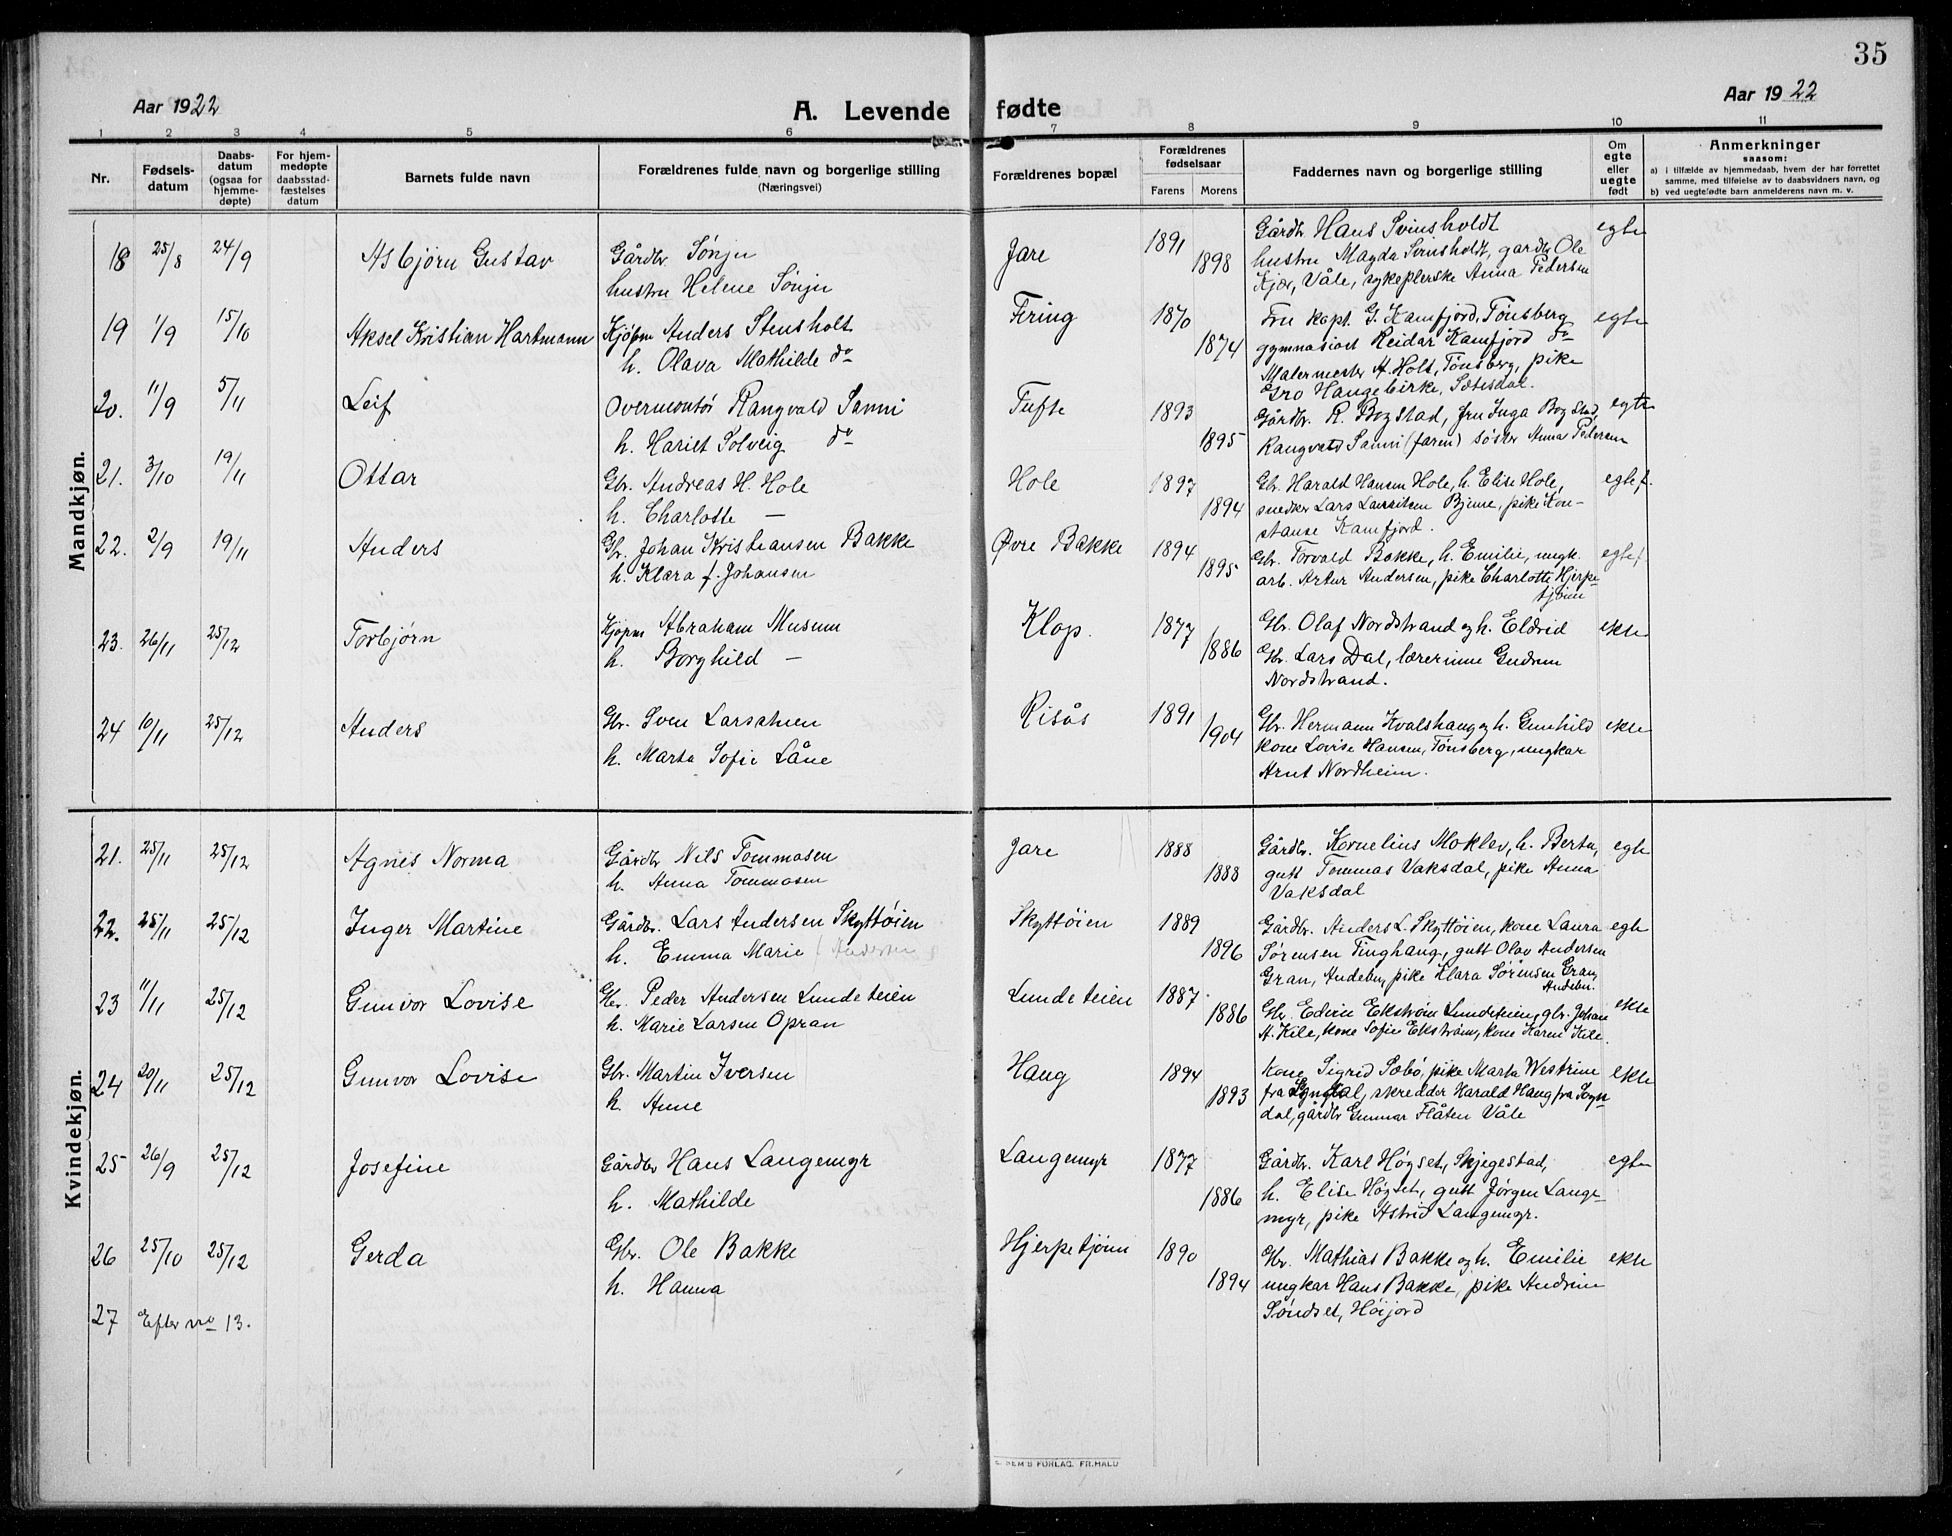 35
Aar 1922
A. Levende fødte
Aar 1922
1 2 3 4 5 6 7 8 9 10 11
Nr.
Fødsels-
datum
Daabs-
datum
(ogsaa for
hjemme-
døpte)
For hjem-
medøpte
daabsstad-
fæstelses
datum
Barnets fulde navn
Forældrenes fulde navn og borgerlige stilling
(Næringsvei)
Forældrenes bopæl
Forældrenes
fødselsaar
Farens Morens
Faddernes navn og borgerlige stilling
Om
egte
eller
uegte
født
Anmerkninger
saasom:
a) i tilfælde av hjemmedaab, hvem der har forrettet
samme, med tilføielse av to daabsvidners navn, og
b) ved uegtefødte barn anmelderens navn m. v.
Mandkjøn.
18 25/8 24/9 Asbjörn Gustav Gårdbr. Sønju Jare 1891 Gårdbr. Hans Svinsholdt egte
hustru Helene Sønju 1898 hustru Magda Svinsholdt, gardbr Ole
Kjær, Våle, sykepleierske Anna Pedersen
19 1/9 15/10 Aksel Kristian Hartmann Kjöpm Anders Stensholt Firing 1870 Fru kapt. G. Kamfjord, Tønsberg egte
h. Olava Mathilde do 1874 gymnasiast Reidar Kamfjord do
Malermester A. Holt, Tønsberg, pike
Gro Haugebirke, Sætesdal.
20. 11/9 5/11 Leif Overmontör Rangvald Sanni Tufte 1893 Gårdbr. R. Bogstad, fru Inga Bogstad, egte
h. Hariet Solveig do 1895 Rangvald Sanni (faren) søster Anna Pedersen
21. 3/10 19/11 Ottar Gbr. Andreas H. Hole Hole 1897 Gbr. Harald Hansen Hole, h. Elise Hole, egte f.
h. Charlotte — 1894 snedker Lars Lauritsen Bjune, pike Kon-
stanse Kamfjord.
22. 2/9 19/11 Anders Gbr. Johan Kristiansen Bakke Øvre Bakke 1894 Gbr. Torvald Bakke, h. Emilie, ungk. egte f.
h. Klara f. Johansen 1895 arb. Artur Andersen, pike Charlotte Hjerpe-
tjönn
23. 26/11 25/12 Torbjørn Kjöpm Abraham Musum Klop. 1877 Gbr. Olaf Nordstrand og h. Eldrid ekte
h. Borghild — 1886 Gbr. Lars Dal, lærerinne Gudrun
Nordstrand.
24 10/11 25/12 Anders Gbr. Sven Risås 1891 Gbr. Hermann Kvalshaug og h. Gunhild ekte
h. Marta Sofie Låne 1904 kone Lovise Hansen, Tönsberg, ungkar
Arnt Nordheim.
Kvindekjøn.
21. 25/11 25/12 Agnes Norma Gårdbr Nils Tommasen Jare 1888 Gårdbr. Kornelius Moklev, h. Berta, egte
h. Anna Tommasen 1888 gutt Tommas Vaksdal, pike Anna
Vaksdal
22. 25/11 25/12 Inger Martine Gårdbr. Lars Andersen Skyttöien Skyttöien 1889 Gårdbr. Anders L. Skyttöien, kone Laura egte
h. Emma Marie f. Andersen 1896 Sørensen Tinghaug, gutt Olav Andersen
Gran, Andebu, pike Klara Sörensen Gran,
Andebu.
23 11/11 25/12 Gunvor Lovise Gbr. Peder Andersen Lundeteien Lundeteien 1887. Gbr. Edvin Ekström Lundeteien, gbr. Johan ekte
h. Marie Larsen Opran 1886 A. Kile, kone Sofie Ekström, kone Karen Kile.
24 20/11 25/12 Gunvor Lovise Gbr. Martin Iversen Haug 1894 Kone Sigrid Sæbö, pike Marta Westrum ekte
h. Anne 1893 fra Sogndal, skredder Harald Haug fra Sogn-
dal, gårdbr Gunnar Flåten Våle
25 26/9 25/12 Josefine Gårdbr Hans Langemyr Langemyr 1877 Gårdbr. Karl Høgset, Skjegestad, egte
h. Mathilde 1886 h. Elise Høgset, gutt Jørgen Lange-
myr, pike Astrid Langemyr.
26 25/10 25/12 Gerda Gbr. Ole Bakke Hjerpetjönn 1890 Gbr. Mathias Bakke og h. Emilie ekte
h. Hanna 1894 ungkar Hans Bakke, pike Andrine
Söndset, Höijord
27 Efter no 13.
FORLAG. FR.HALD